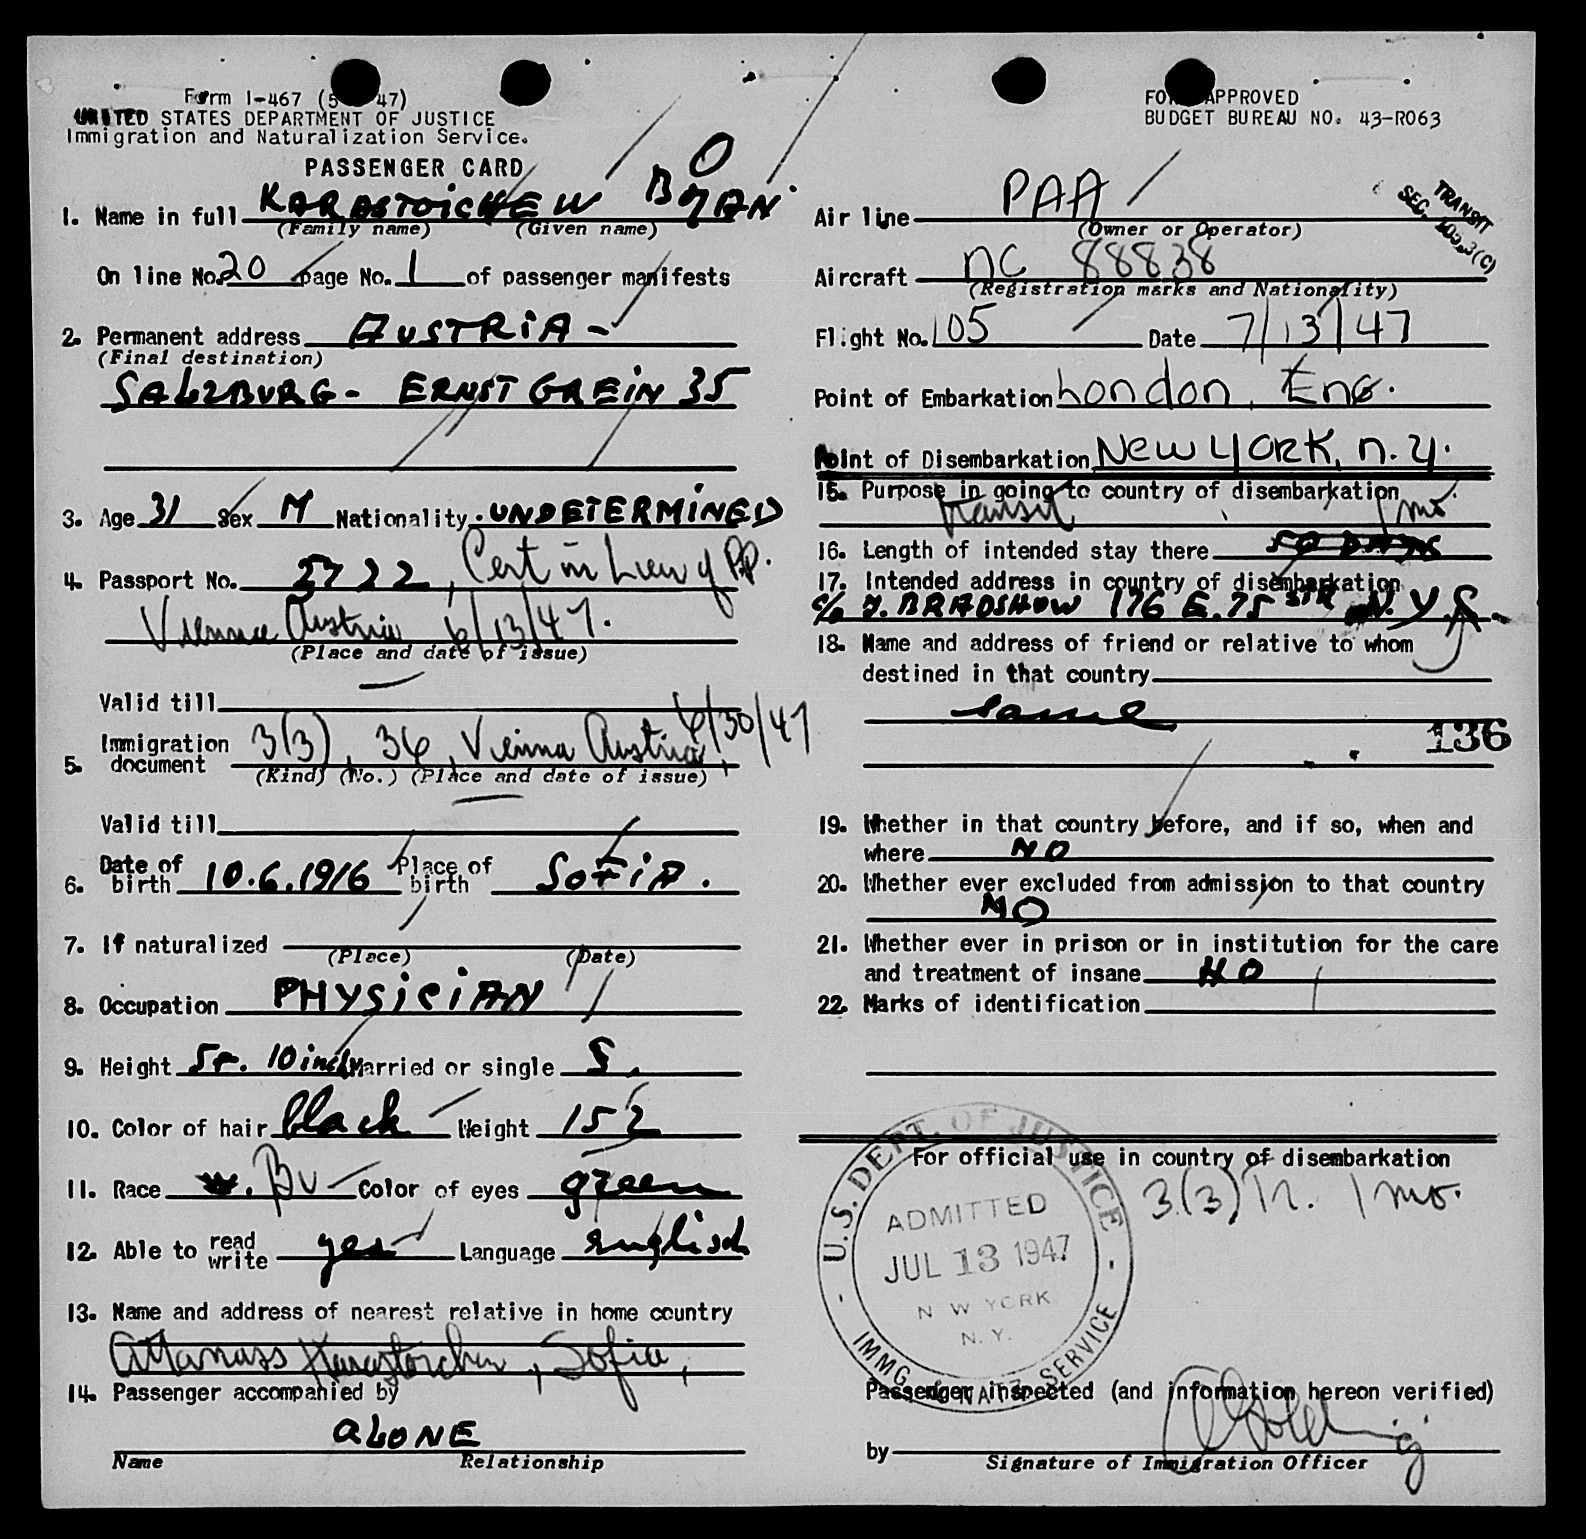 Form I-467 (5 47)
UNITED STATES DEPARTMENT OF JUSTICE
Immigration and Naturalization Service.
PASSENGER CARD
1. Name in full KARASTOICHEW BOYAN
(Family name) (Given name)
On line No. 20 page No. 1 of passenger manifests
2. Permanent address AUSTRIA -
(Final destination)
SALZBURG - ERNST GREIN 35
3. Age 31 Sex M Nationality UNDETERMINED
4. Passport No. 5722, Cert in Lieu of P.P.
Vienna Austria 6/13/47.
(Place and date of issue)
Valid till
5. Immigration document 3(3), 36, Vienna Austria, 6/30/47
(Kind) (No.) (Place and date of issue)
Valid till
6. Date of birth 10.6.1916 Place of birth SOFIA.
7. If naturalized
(Place) (Date)
8. Occupation PHYSICIAN
9. Height 5F. 10 inch Married or single S.
10. Color of hair black Weight 152
11. Race W. Bu Color of eyes green
12. Able to read write yes Language English
13. Name and address of nearest relative in home country
Attanass Karastoichew, Sofia,
14. Passenger accompanied by
ALONE
Name Relationship
FORM APPROVED
BUDGET BUREAU NO. 43-R063
TRANSIT
SEC. 103.3(C)
Air line PAA
(Owner or Operator)
Aircraft NC 88838
(Registration marks and Nationality)
Flight No. 105 Date 7/13/47
Point of Embarkation London, Eng.
Point of Disembarkation New York, N.Y.
15. Purpose in going to country of disembarkation
transit 1 mo.
16. Length of intended stay there
17. Intended address in country of disembarkation
c/o J. BRADSHOW 176 E. 75 STR N.Y.
18. Name and address of friend or relative to whom
destined in that country
same
136
19. Whether in that country before, and if so, when and
where NO
20. Whether ever excluded from admission to that country
NO
21. Whether ever in prison or in institution for the care
and treatment of insane NO
22. Marks of identification
For official use in country of disembarkation
3(3) Tr. 1 mo.
U.S. DEPT. OF JUSTICE
ADMITTED
JUL 13 1947
N W YORK
N.Y.
IMMG. & NATZ. SERVICE
Passenger inspected (and information hereon verified)
by
Signature of Immigration Officer